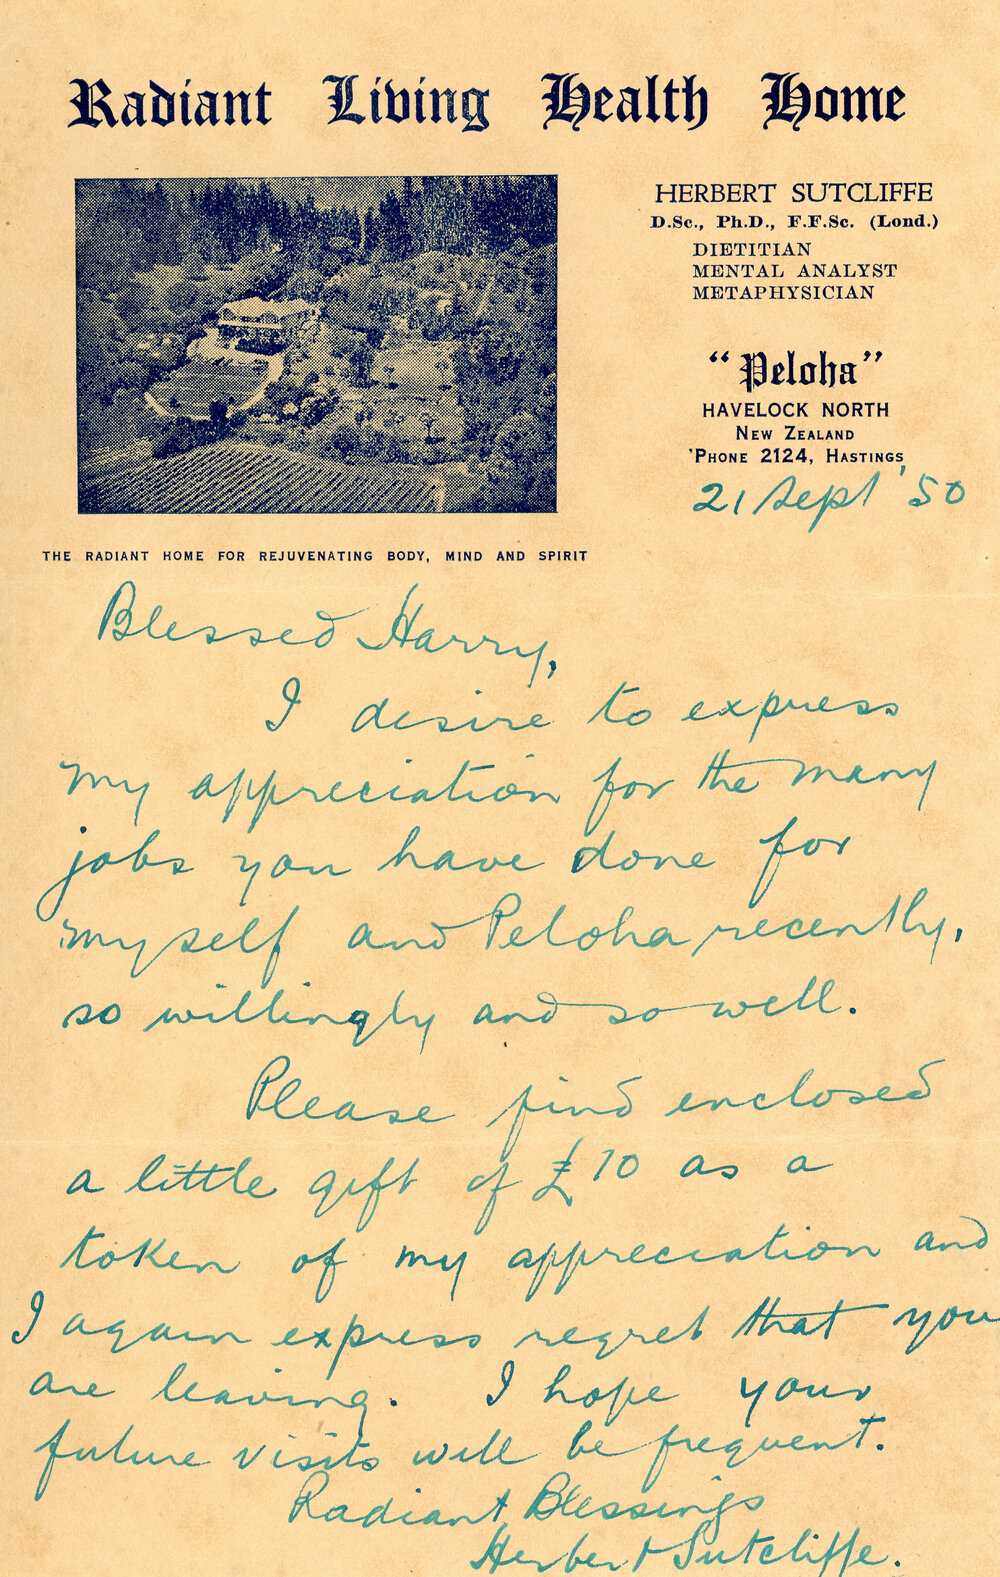 Radiant Living Health Home
HERBERT SUTCLIFFE
D.Sc., Ph.D., F.F.Sc. (Lond.)
DIETITIAN
MENTAL ANALYST
METAPHYSICIAN
“Peloha”
HAVELOCK NORTH
NEW ZEALAND
'PHONE 2124, HASTINGS
21 Sept '50
THE RADIANT HOME FOR REJUVENATING BODY, MIND AND SPIRIT
Blessed Harry,
I desire to express
my appreciation for the many
jobs you have done for
myself and Peloha recently,
so willingly and so well.
Please find enclosed
a little gift of £10 as a
token of my appreciation and
I again express regret that you
are leaving. I hope your
future visits will be frequent.
Radiant Blessings
Herbert Sutcliffe.